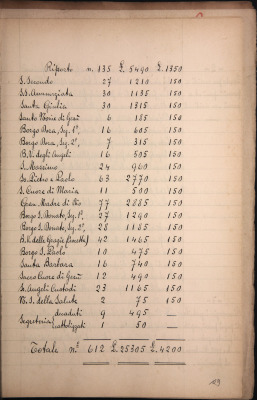 Riporto n. 135 £. 5490 £. 1350
S. Secondo 27 1210 150
S.S. Annunziata 30 1135 150
Santa Giulia 30 1315 150
Santo Nome di Gesù 6 185 150
Borgo Dora, Sez. 1ª, 16 605 150
Borgo Dora, Sez. 2ª, 7 315 150
B.V. degli Angeli 16 505 150
S. Massimo 24 960 150
Ss. Pietro e Paolo 63 2770 150
S. Cuore di Maria 11 500 150
Gran Madre di Dio 77 2885 150
Borgo S. Donato, Sez. 1ª, 27 1290 150
Borgo S. Donato, Sez. 2ª, 28 1185 150
B.V. delle Grazie (Crocetta) 42 1465 150
Borgo S. Paolo 10 475 150
Santa Barbara 16 740 150
Sacro Cuore di Gesù 12 490 150
Ss. Angeli Custodi 23 1165 150
N.S. della Salute 2 75 150
Segreteria 9 495 —
cattolizzati 1 50 —
Totale n.º 612 £. 25305 £. 4200